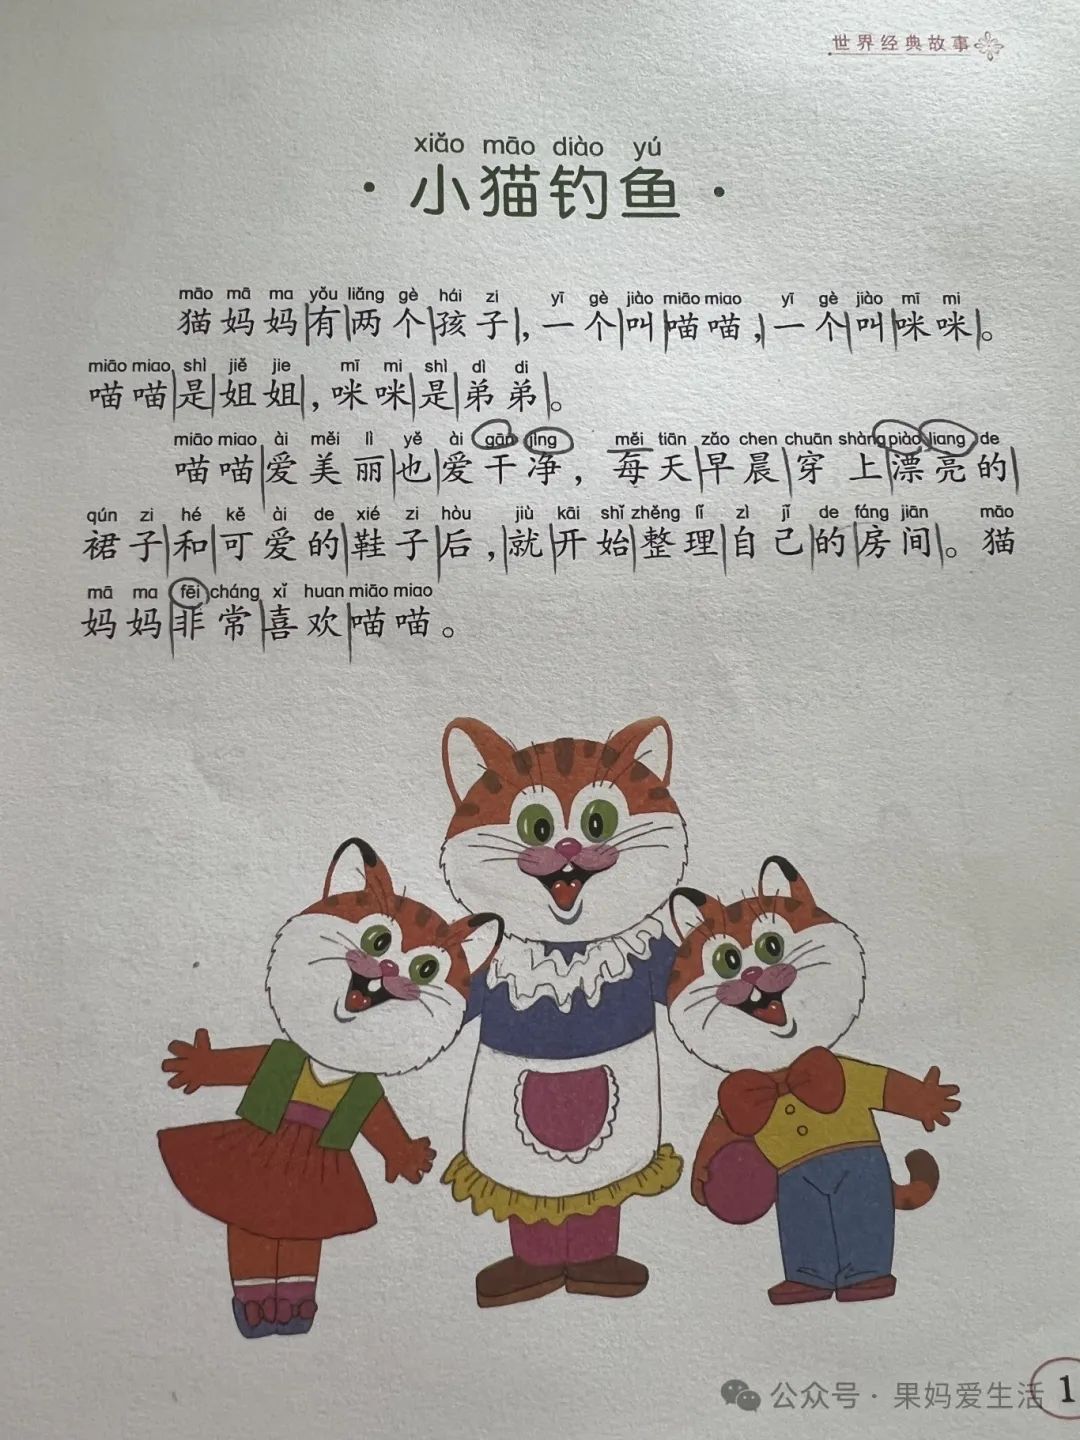 世界经典故事
xiǎo māo diào yú
·小猫钓鱼·
māo mā ma yǒu liǎng gè hái zi yī gè jiào miāo miao yī gè jiào mī mi
猫妈妈有两个孩子，一个叫喵喵，一个叫咪咪。
miāo miao shì jiě jie mī mi shì dì di
喵喵是姐姐，咪咪是弟弟。
miāo miao ài měi lì yě ài gān jìng měi tiān zǎo chen chuān shàng piào liang de
喵喵爱美丽也爱干净，每天早晨穿上漂亮的
qún zi hé kě ài de xié zi hòu jiù kāi shǐ zhěng lǐ zì jǐ de fáng jiān māo
裙子和可爱的鞋子后，就开始整理自己的房间。猫
mā ma fēi cháng xǐ huan miāo miao
妈妈非常喜欢喵喵。
公众号·果妈爱生活
1